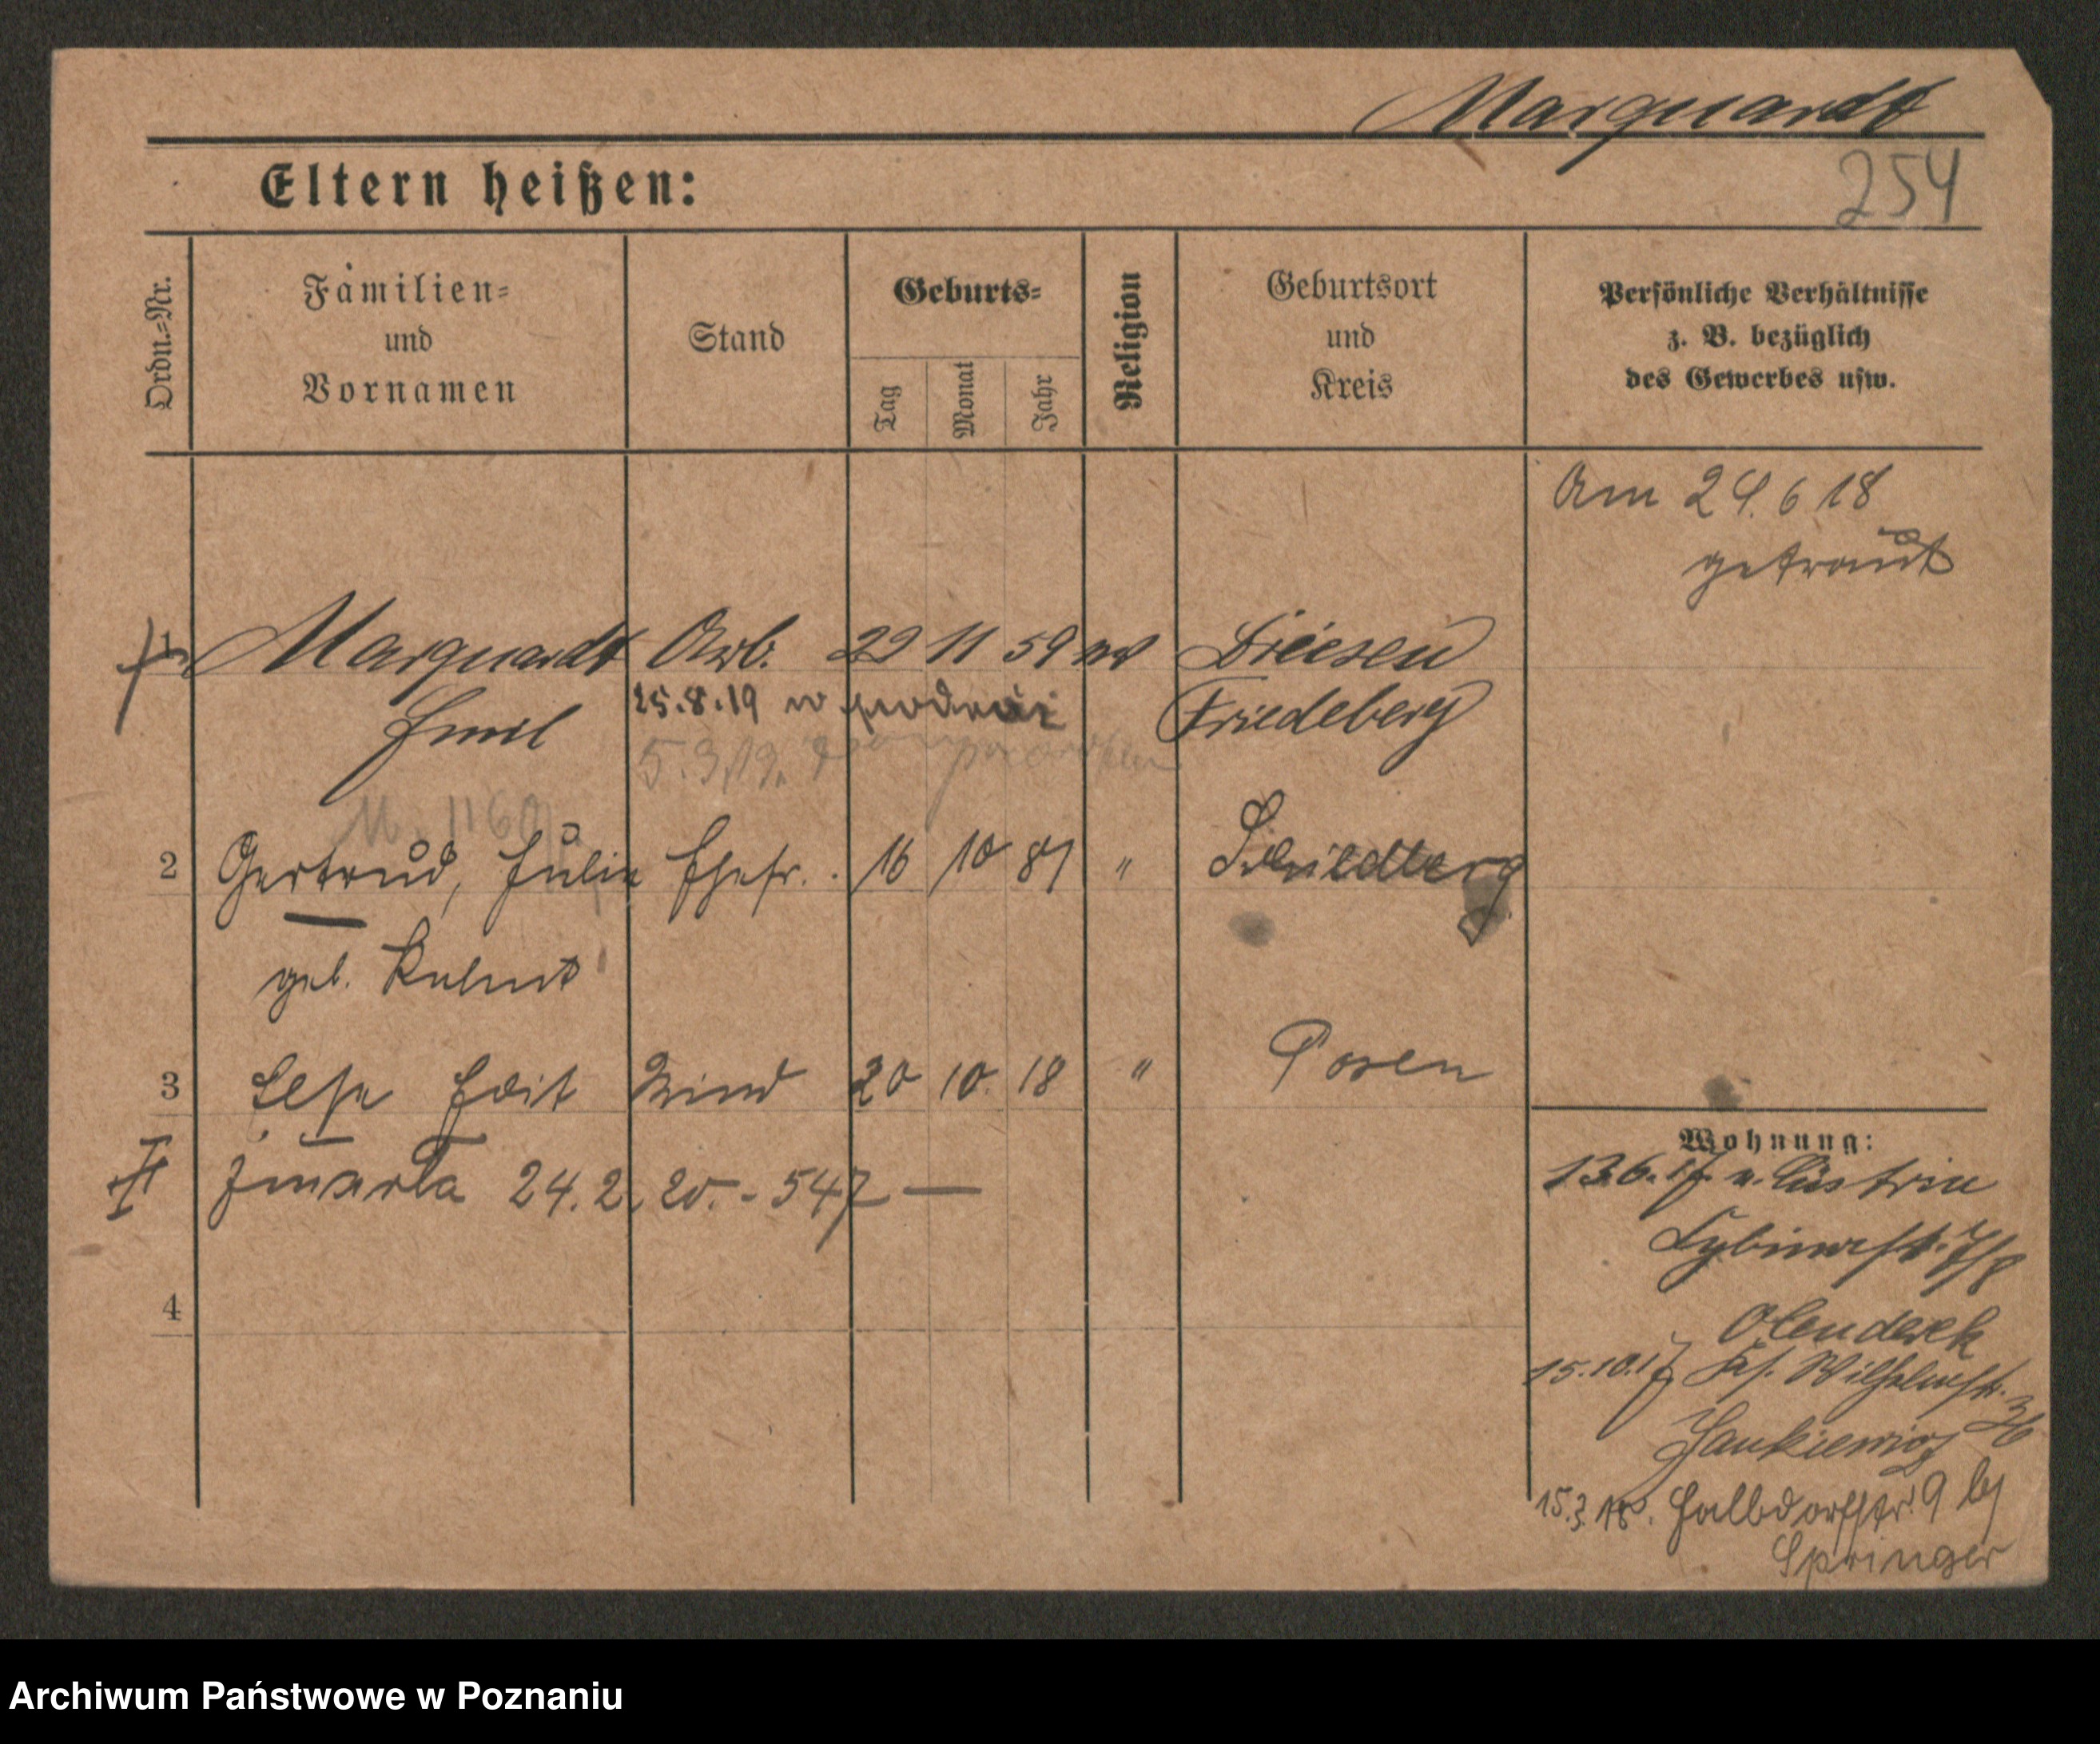 Marquardt
254
Eltern heißen:
Ordn.-Nr.
Familien-
und
Vornamen
Stand
Geburts-
Tag
Monat
Jahr
Religion
Geburtsort
und
Kreis
Persönliche Verhältnisse
z. B. bezüglich
des Gewerbes usw.
Am 24. 6 18
getraut
1 Marquardt Arb. 29 11 59 ev Driesen
Emil 25.8.19 w podróż Friedeberg
5.3.19.
2 Gertrud, Julie Ehefr. 16 10 81 "
geb.
3 Edit Kind 20 10. 18 " Posen
II zmarła 24.2.20. - 547 —
4
Wohnung:
13.6.17 v. Cüstrin
Cybinastr. 7/8
Olenderek
15.10.17 Ks. Wilhelmstr. 36
Jankiewicz
15.3.18. Halbdorfstr. 9 bei
Springer
Archiwum Państwowe w Poznaniu